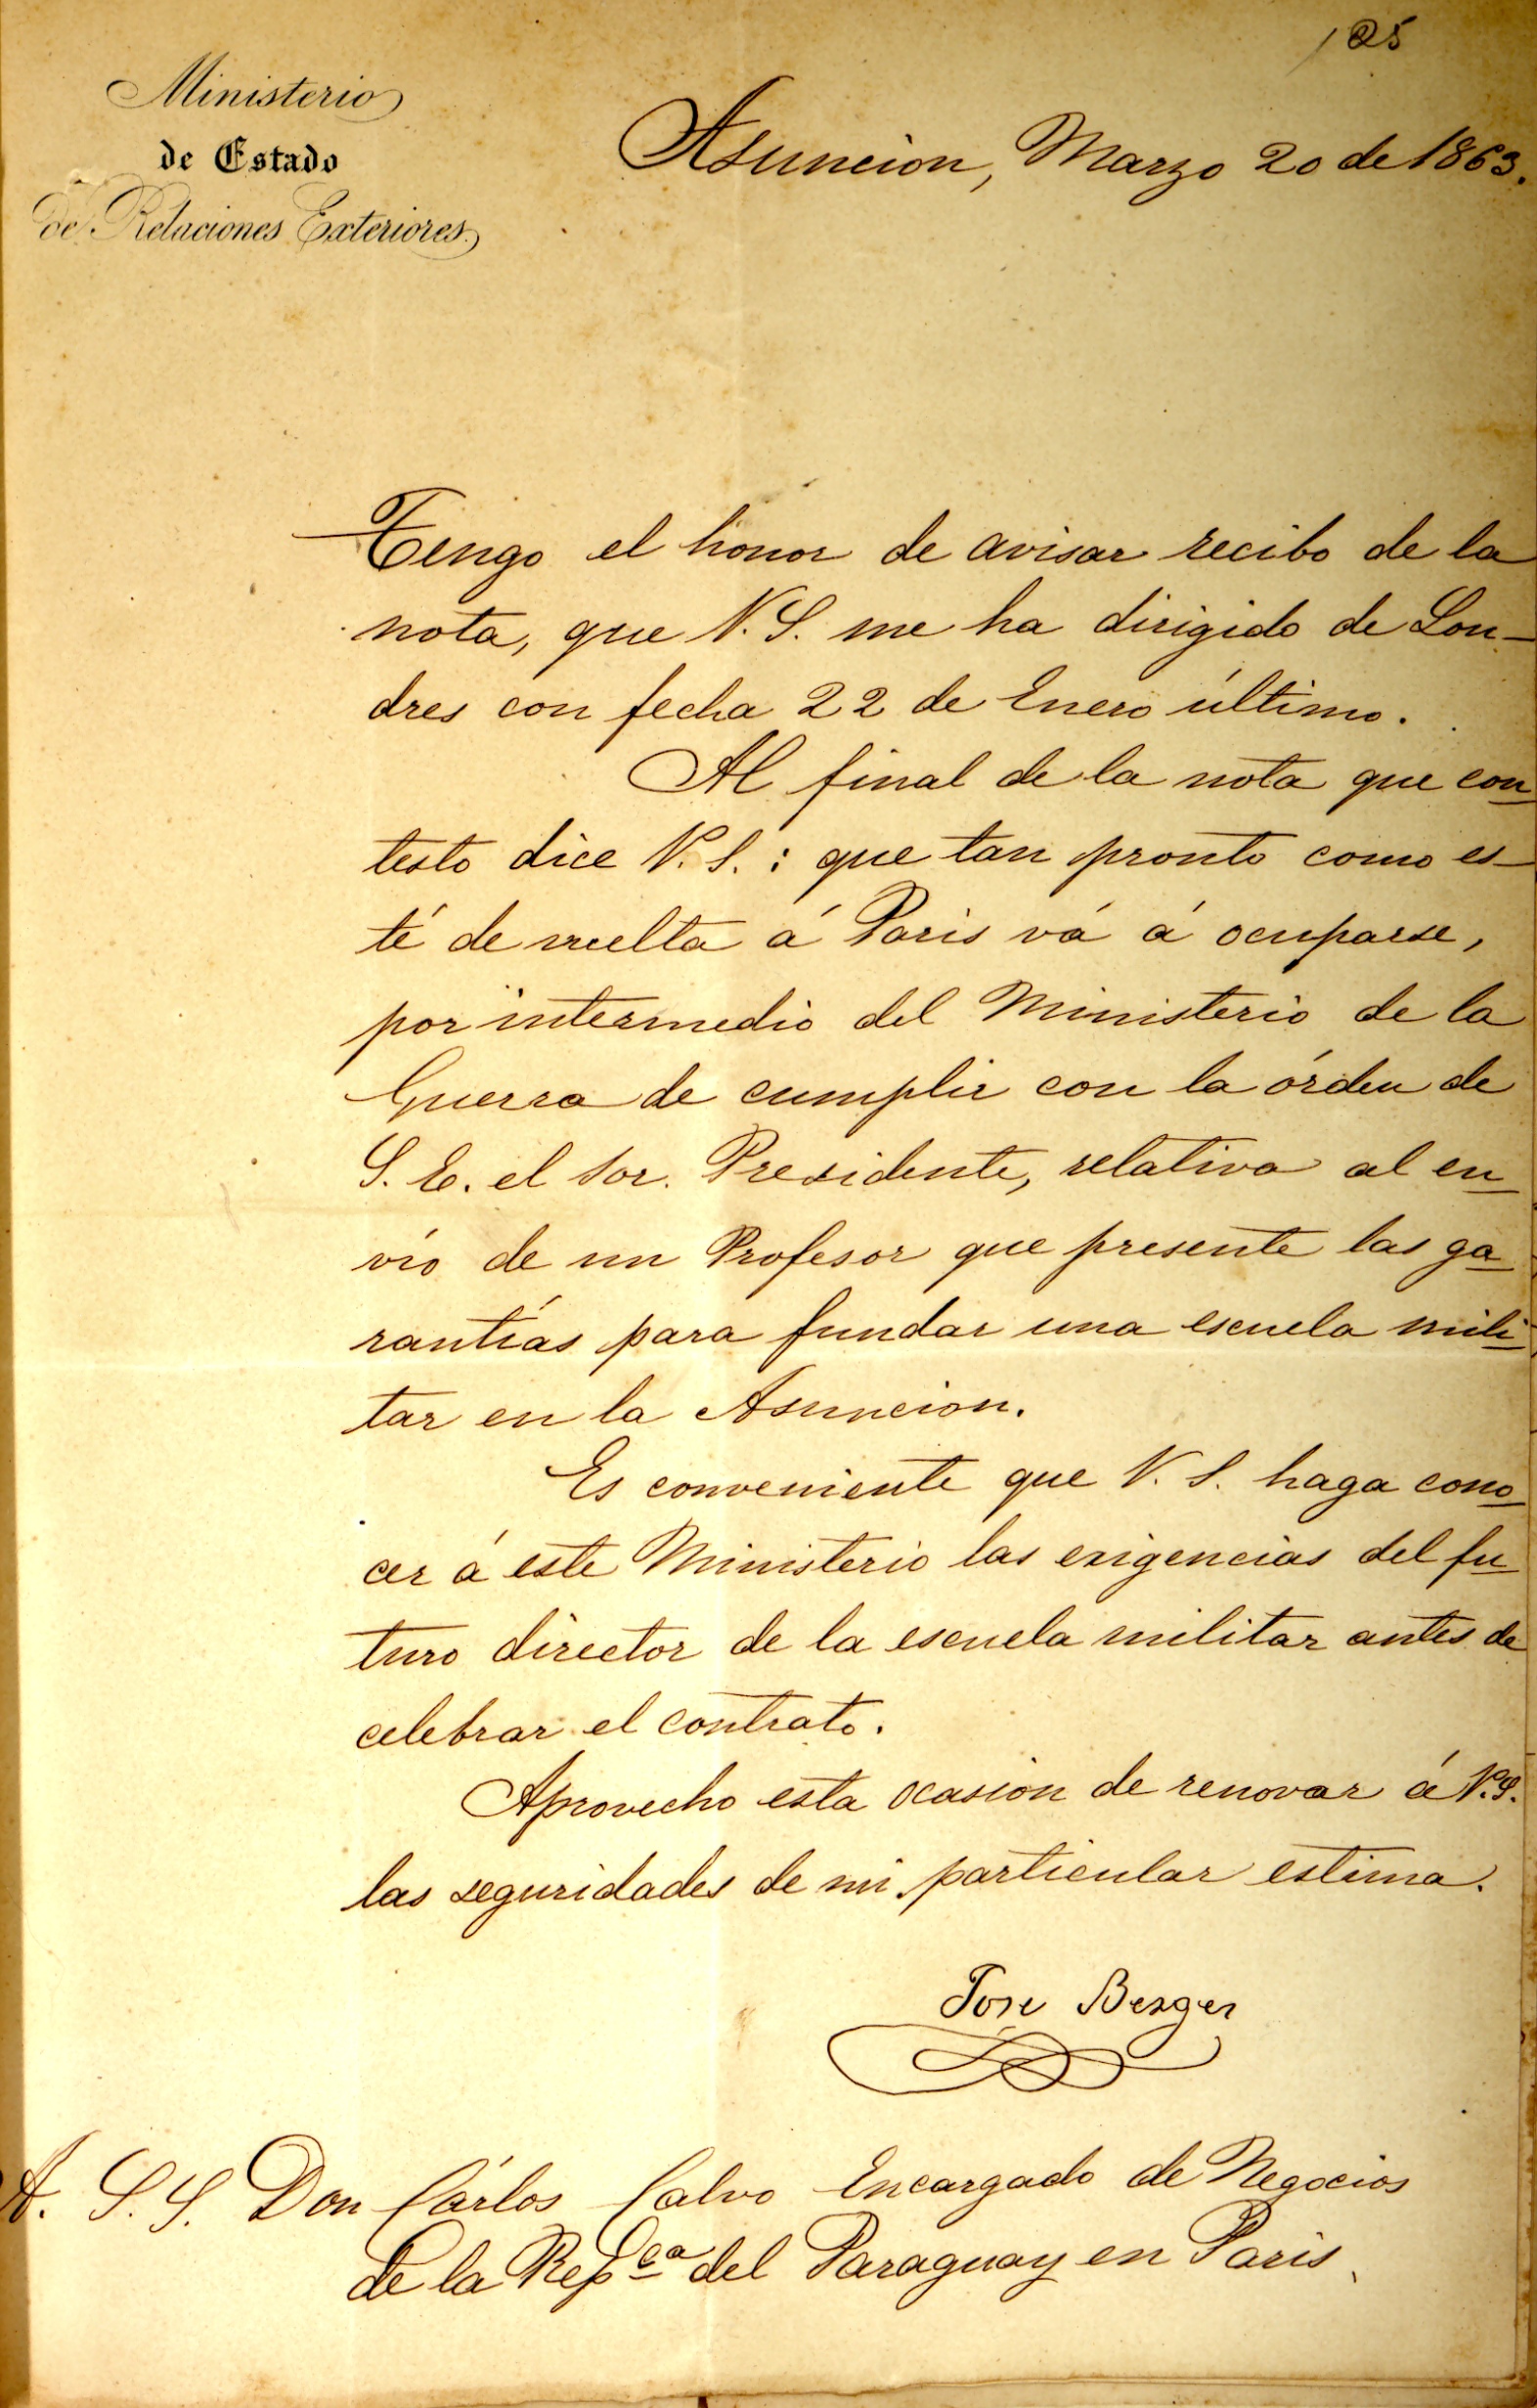 125
Ministerio
de Estado
de Relaciones Exteriores.
Asuncion, Marzo 20 de 1863.
Tengo el honor de avisar recibo de la
nota, que V. S. me ha dirigido de Lon-
dres con fecha 22 de Enero último.
Al final de la nota que con-
testo dice V. S. : que tan pronto como es-
té de vuelta á Paris vá á ocuparse,
por intermedio del Ministerio de la
Guerra de cumplir con la órden de
S. E. el Sor. Presidente, relativa al en-
vio de un Profesor que presente las ga-
rantías para fundar una escuela mili-
tar en la Asuncion.
Es conveniente que V. S. haga cono-
cer á este Ministerio las exigencias del fu-
turo director de la escuela militar antes de
celebrar el contrato.
Aprovecho esta ocasion de renovar á V. S.
las seguridades de mi particular estima.
Jose Berges
A. S. S. Don Cárlos Calvo Encargado de Negocios
de la Repca del Paraguay en Paris.